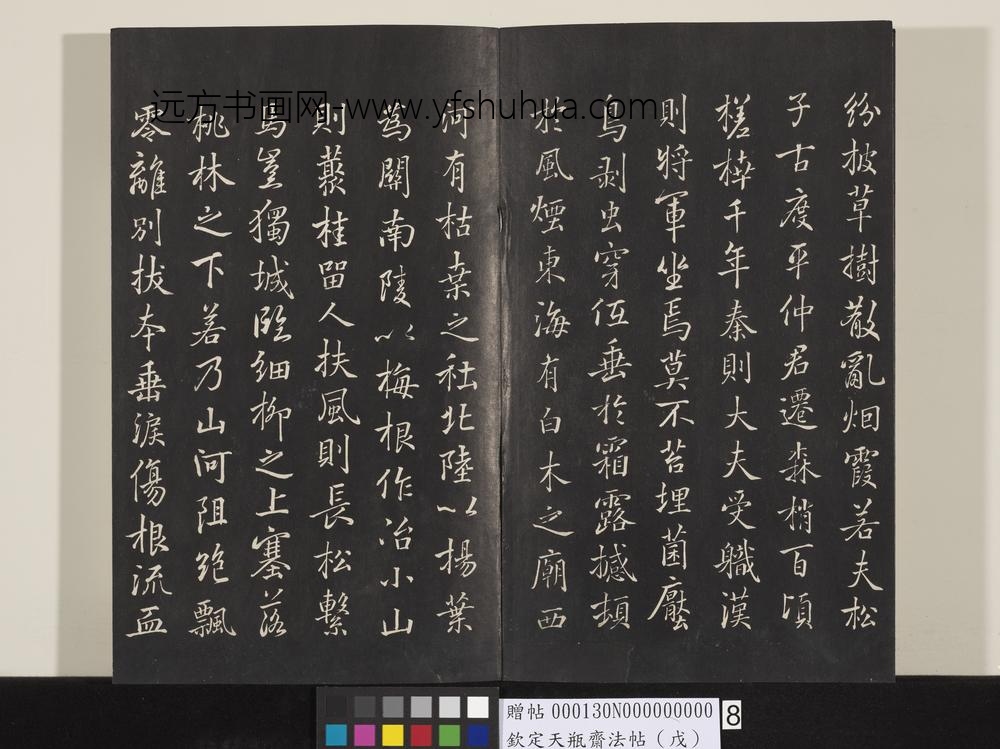 紛披草樹散亂烟霞若夫松
子古度平仲君遷森梢百頃
槎枿千年秦則大夫受職漢
則將軍坐焉莫不苔埋菌壓
鳥剥虫穿低垂於霜露撼頓
於風煙東海有白木之廟西
河有枯桒之社北陸以楊葉
為關南陵以梅根作冶小山
則藂桂留人扶風則長松繫
馬豈獨城臨細柳之上塞落
桃林之下若乃山河阻絶飄
零離別拔本垂淚傷根流血
远方书画网-www.yfshuhua.com
贈帖 000130N000000000
欽定天瓶齋法帖（戊）
8